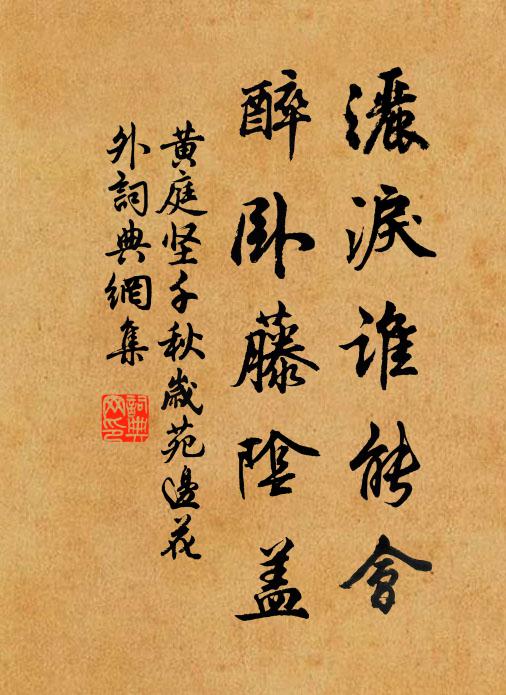 灑淚誰能會
醉卧藤陰盖
黄庭坚千秋歲苑邊花
外詞典網集
詞典
网印